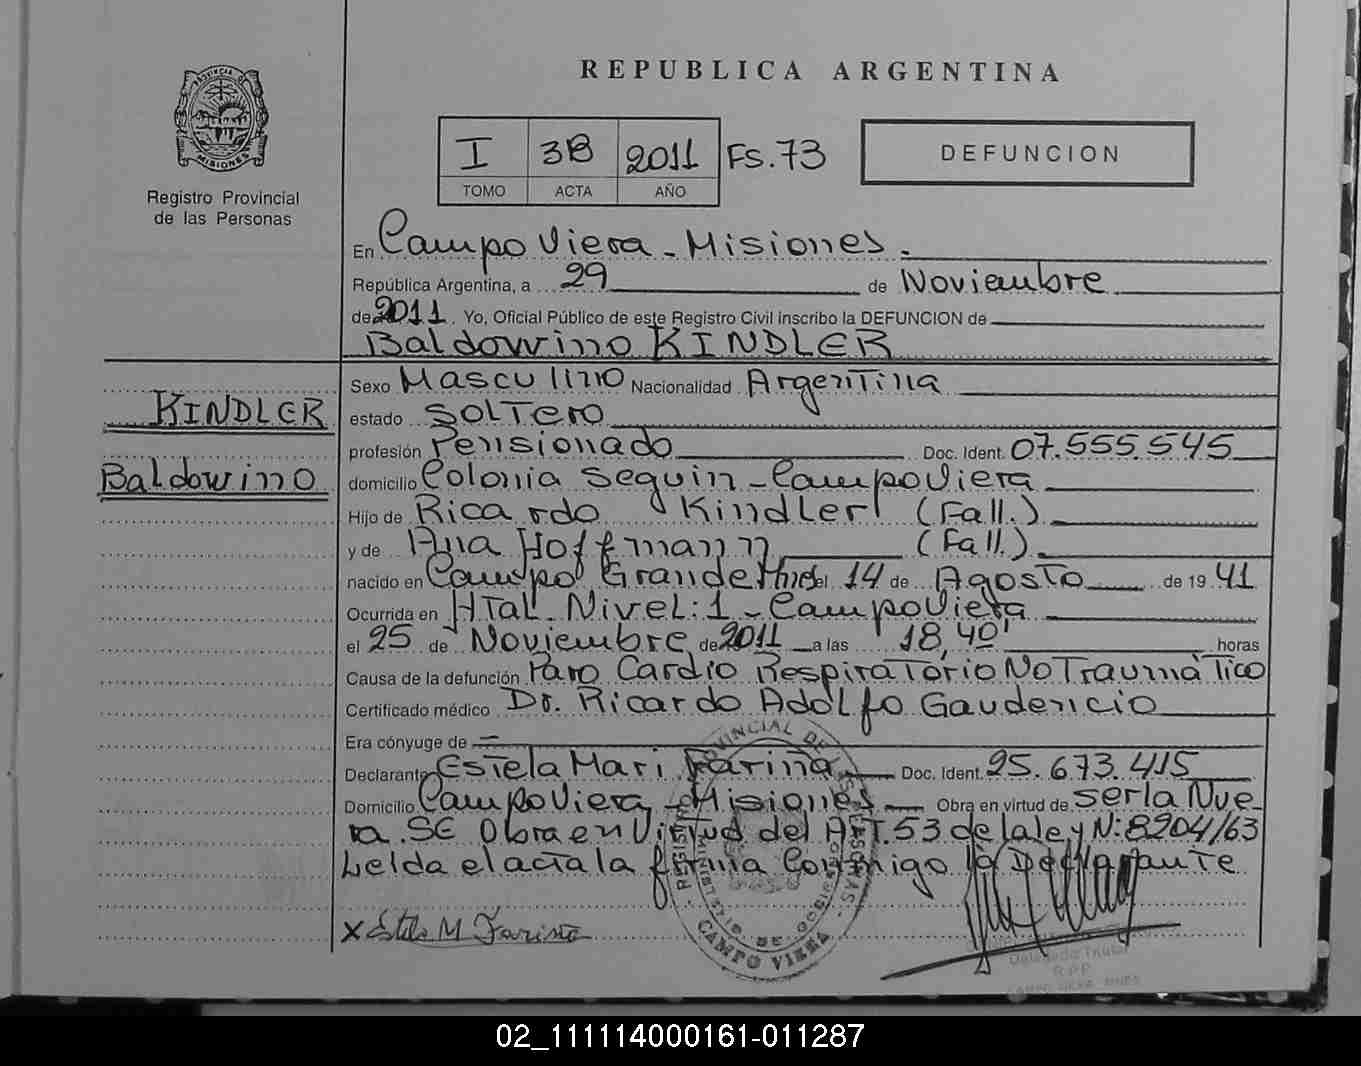 REPUBLICA ARGENTINA
PROVINCIA DE
MISIONES
Registro Provincial
de las Personas
I 3B 2011 FS.73
TOMO ACTA AÑO
DEFUNCION
En Campo Viera - Misiones.
República Argentina, a 29 de Noviembre
de 2011. Yo, Oficial Público de este Registro Civil inscribo la DEFUNCION de
Baldowino KINDLER
KINDLER
Baldowino
Sexo Masculino Nacionalidad Argentina
estado SOLTero
profesión Pensionado Doc. Ident. 07.555.545
domicilio Colonia Seguin - Campo Viera
Hijo de Ricardo Kindler (Fall.)
y de Ana Hoffmann (Fall.)
nacido en Campo Grande Mnes el 14 de Agosto de 19 41
Ocurrida en HTal. Nivel: 1 - Campo Viera
el 25 de Noviembre de 2011 a las 18,40' horas
Causa de la defunción Paro Cardio Respiratorio No Traumático
Certificado médico Dr. Ricardo Adolfo Gaudencio
Era cónyuge de —
Declarante Estela Mari Fariña Doc. Ident. 25.673.415
Domicilio Campo Viera - Misiones Obra en virtud de ser la Nue-
ra. SE Obra en Virtud del ART. 53 de la ley N: 8204/63
Leida el acta la firma Conmigo la Declarante
X Estela M Fariña
PROVINCIAL DE LAS PERSONAS
MINISTERIO DE GOBIERNO
CAMPO VIERA
Delegado Titular
R.P.P.
CAMPO VIERA - MNES
02_111114000161-011287